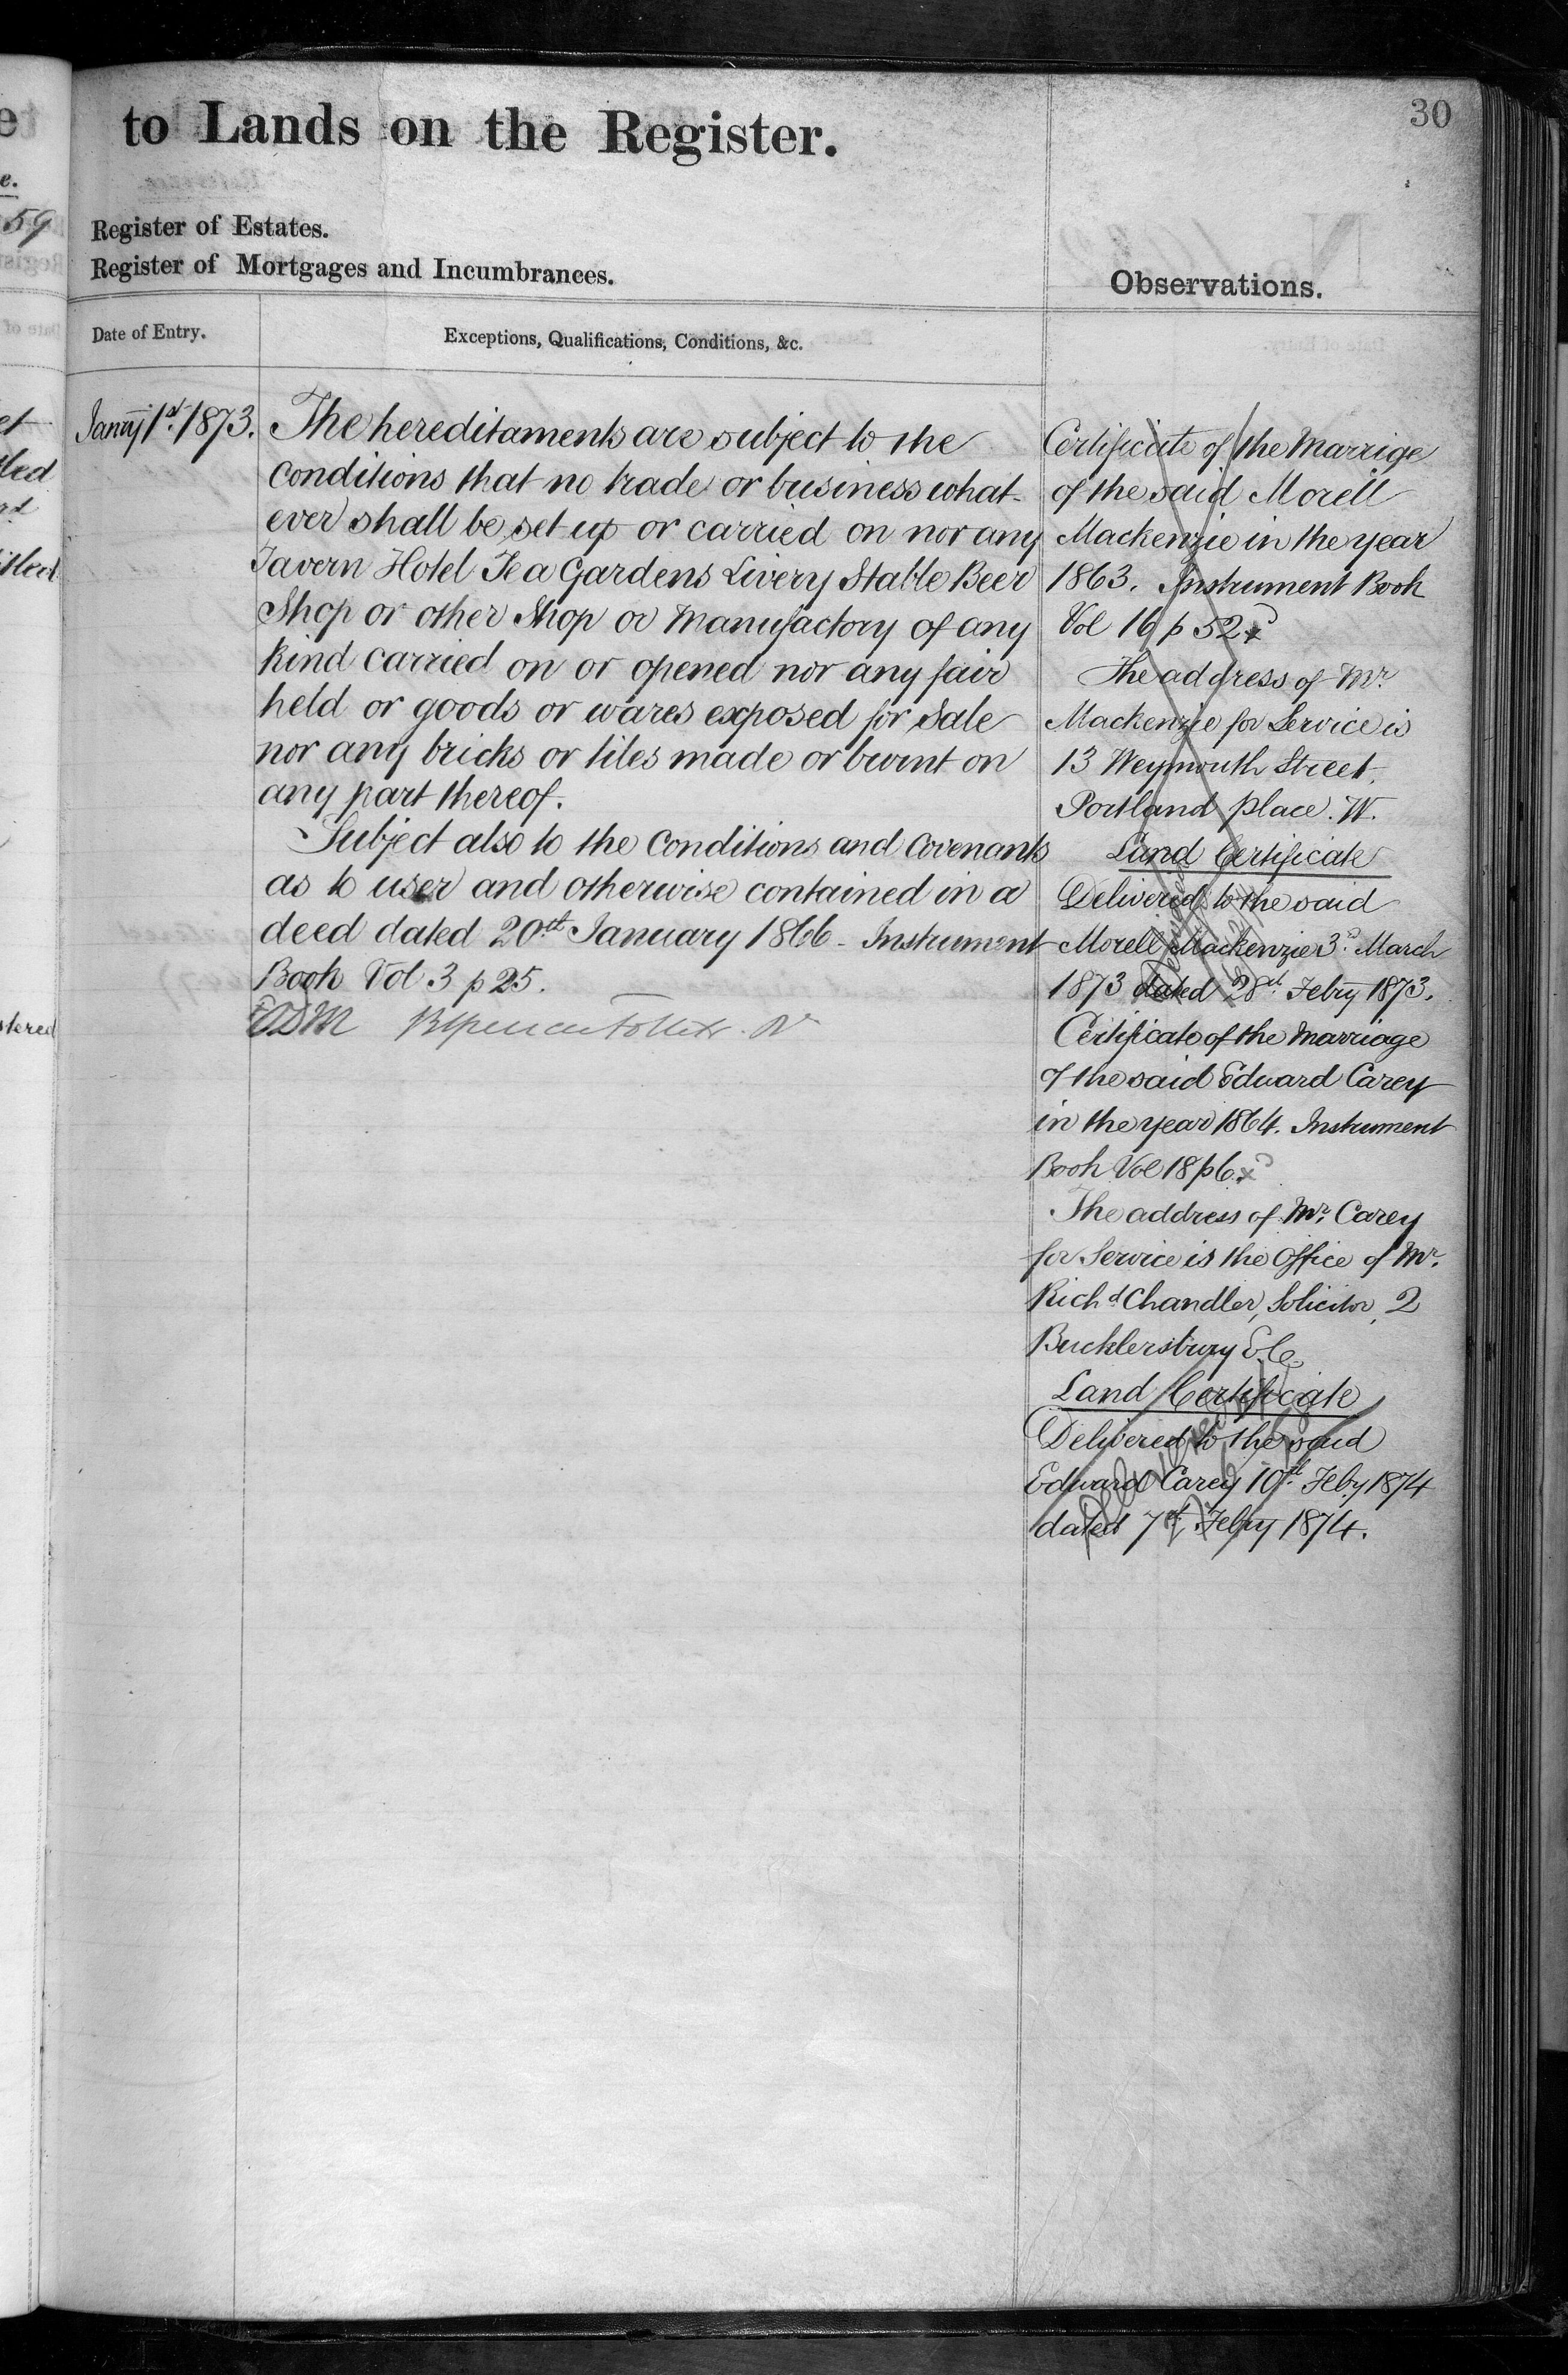 30
to Lands on the Register.
Register of Estates.
Register of Mortgages and Incumbrances.
Observations.
Date of Entry.
Exceptions, Qualifications, Conditions, &c.
Janry 1st. 1873.
The hereditaments are subject to the
Conditions that no trade or business what-
ever shall be set up or carried on nor any
Tavern Hotel Tea Gardens Livery Stable Beer
Shop or other Shop or Manufactory of any
kind carried on or opened nor any fair
held or goods or wares exposed for sale
nor any bricks or tiles made or burnt on
any part thereof.
Subject also to the Conditions and Covenants
as to user and otherwise contained in a
deed dated 20th January 1866 - Instrument
Book Vol 3 p 25.
Certificate of the Marrige
of the said Morell
Mackenzie in the year
1863. Instrument Book
Vol 16 p 52
The address of Mr.
Mackenzie for Service is
13 Weymouth Street,
Portland Place. W.
Land Certificate
Delivered to the said
Morell Mackenzie 3d. March
1873 dated 28th. Febry 1873.
Certificate of the Marriage
of the said Edward Carey
in the year 1864. Instrument
Book Vol 18 p 6.
The address of Mr. Carey
for Service is the Office of Mr.
Richd. Chandler, Solicitor, 2
Bucklersbury E.C.
Land Certificate
Delivered to the said
Edward Carey 10th. Feby 1874
dated 7th. Febry 1874.